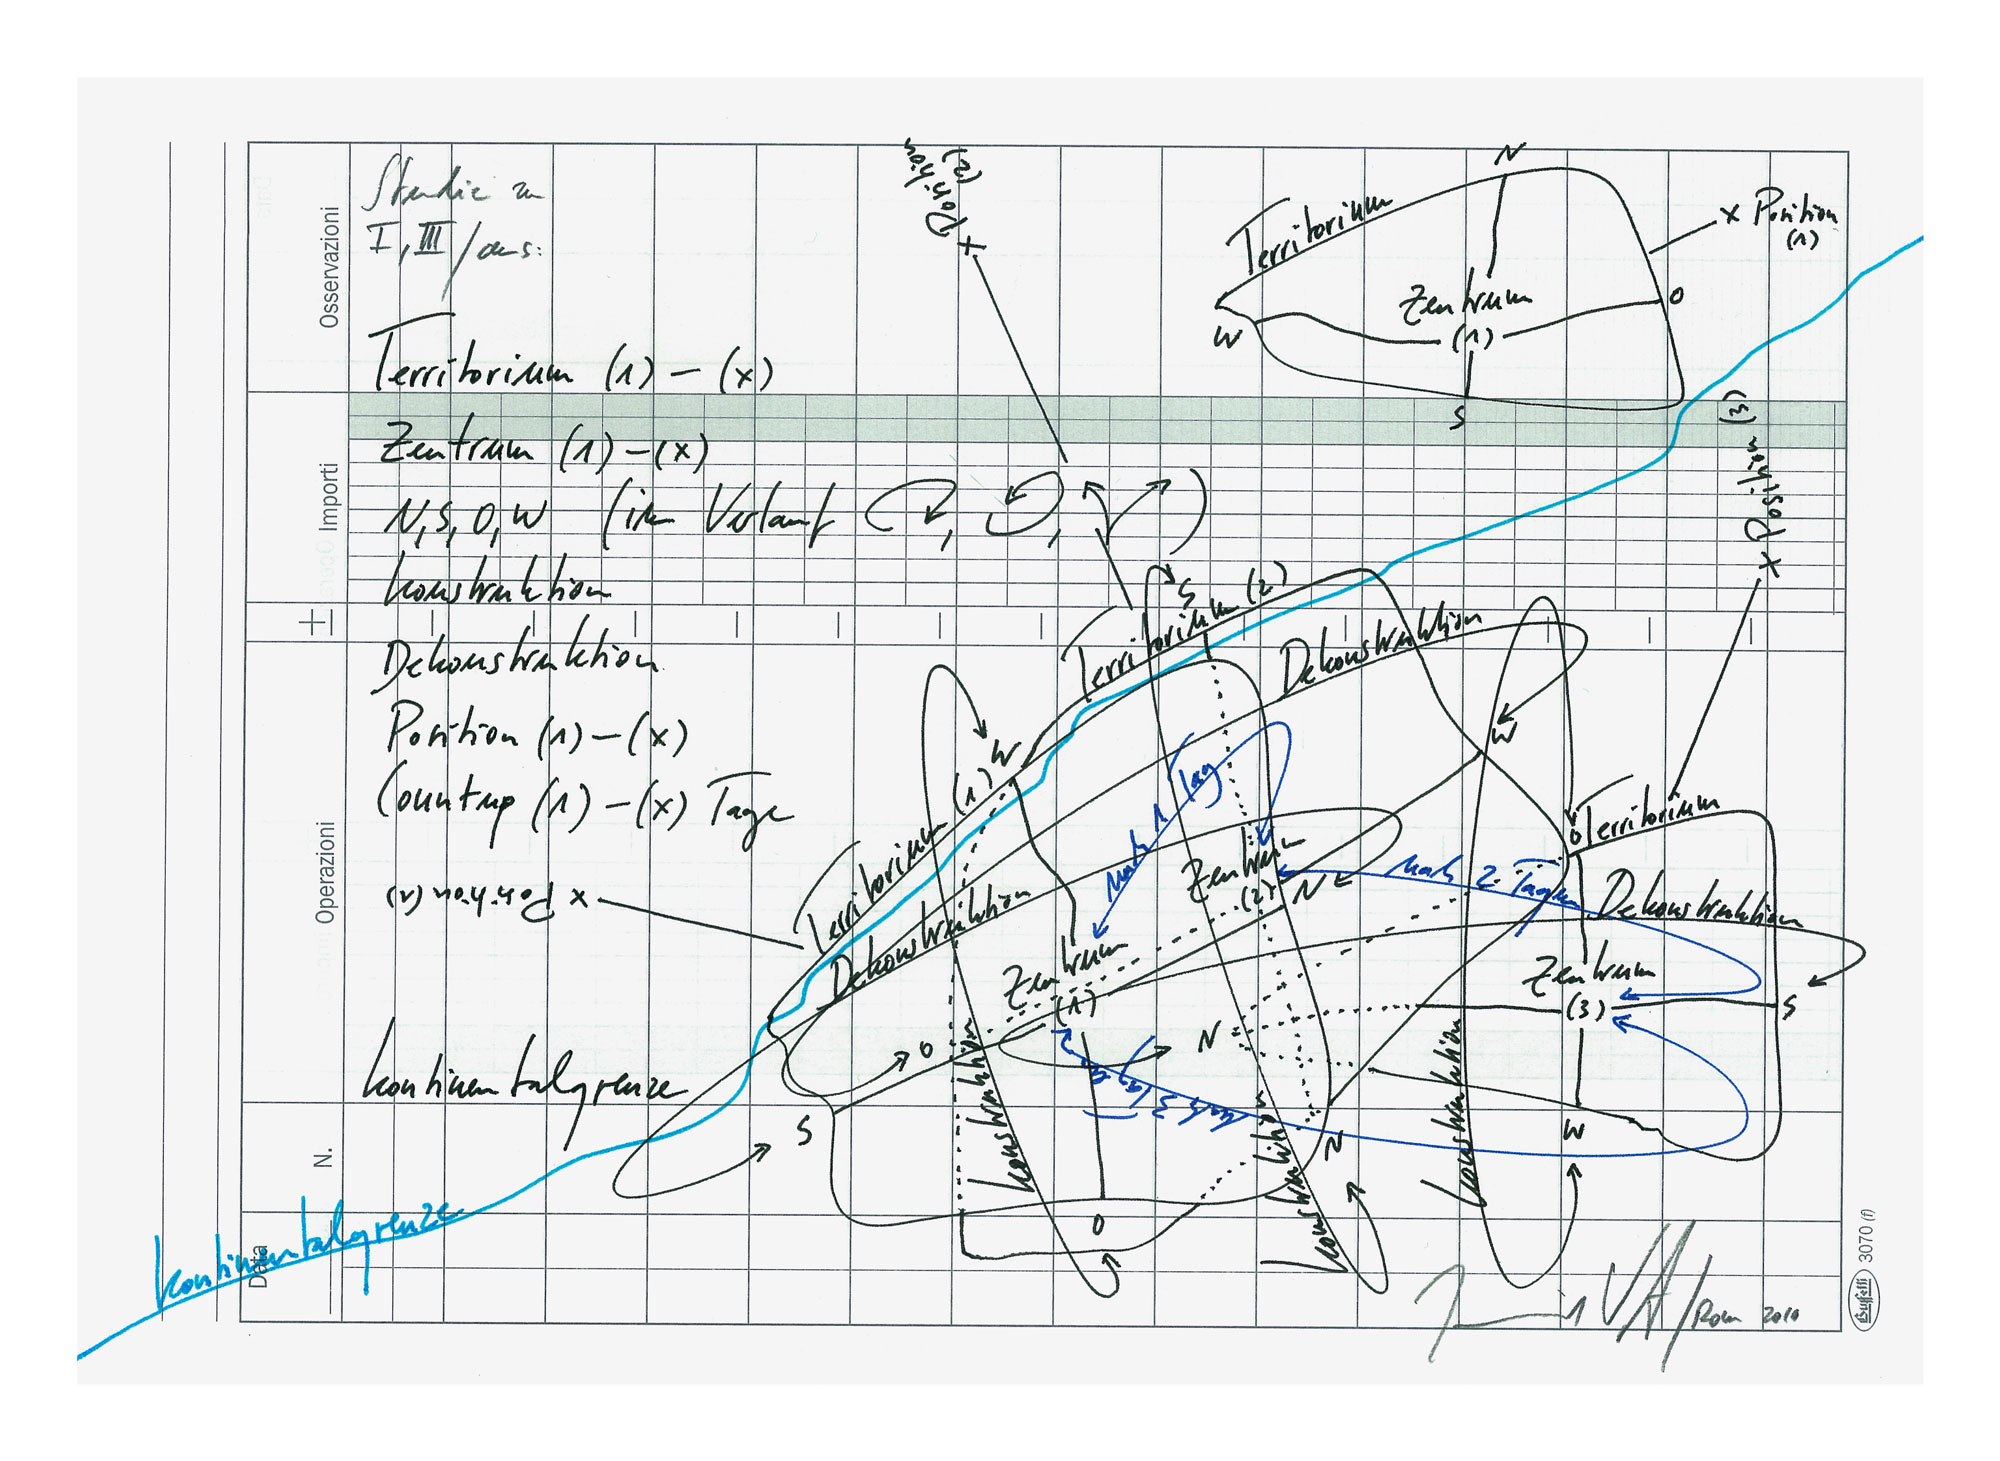 Studie zu
I, III / aus:
Territorium (1) – (x)
Zentrum (1) – (x)
N, S, O, W (im Verlauf , , )
Konstruktion
Dekonstruktion
Position (1) – (x)
Countup (1) – (x) Tage
Kontinentalgrenze
Osservazioni
Importi
+
Operazioni
N.
Data
Position
(2)
x
N
Territorium
x Position
(1)
Zentrum
(1)
O
W
S
x Position (3)
S
Territorium (2)
Dekonstruktion
W
W
Territorium (1)
nach 1 Tag
x Position (1)
Dekonstruktion
Zentrum
(2)
N
nach 2 Tagen
O
Territorium
Dekonstruktion
Zentrum
(1)
O
N
Zentrum
(3)
S
nach 3 Tagen
S
Konstruktion
Konstruktion
N
Konstruktion
W
O
Kontinentalgrenze
Rom 2010
Buffetti
3070 (f)